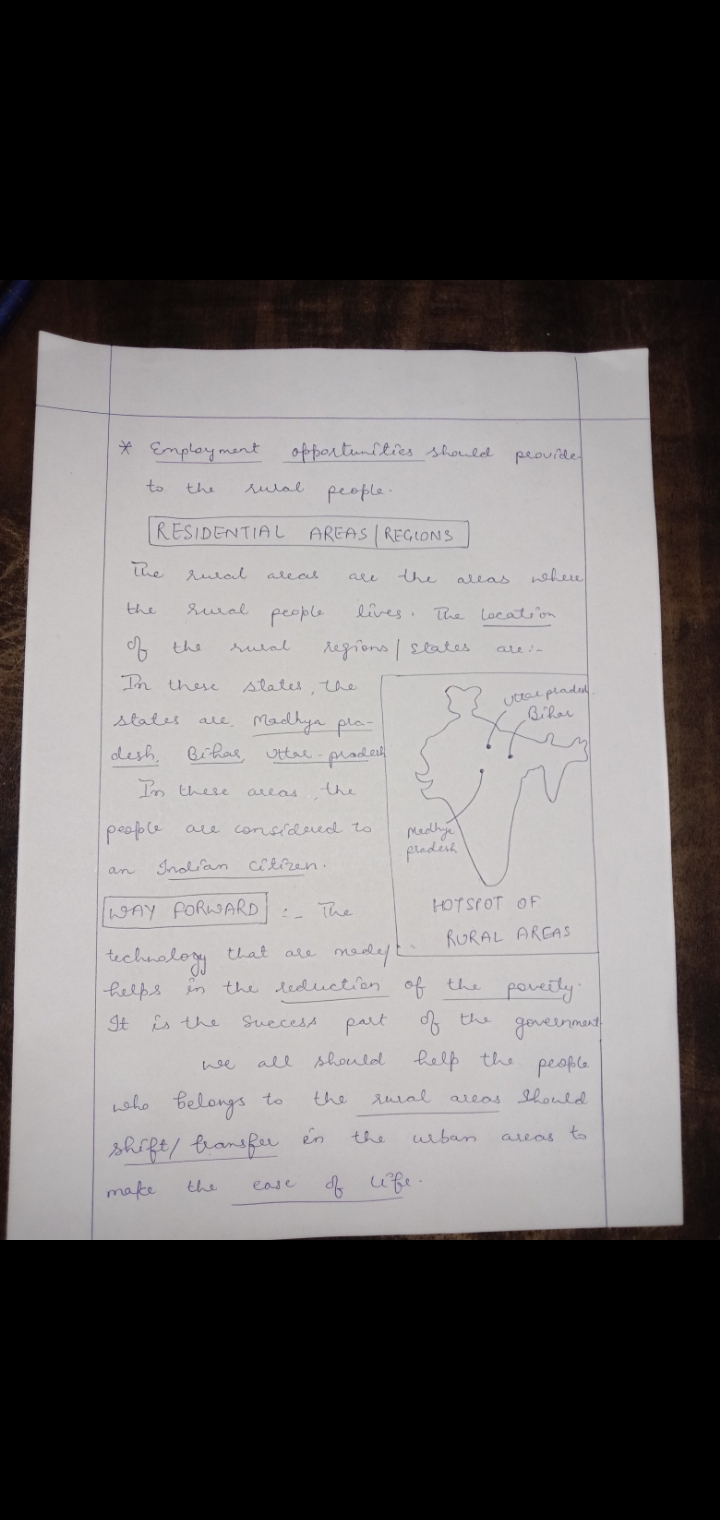 * Employment opportunities should provide
to the rural people.
RESIDENTIAL AREAS/REGIONS
The rural areas are the areas where
the rural people lives. The location
of the rural regions/states are:-
In these states, the
states are Madhya pra-
desh, Bihar, Uttar-pradesh
In these areas, the
people are considered to
an Indian citizen.
Uttar pradesh.
Bihar
Madhya
pradesh
HOTSPOT OF
RURAL AREAS
WAY FORWARD :- The
technology that are made/
helps in the reduction of the poverty.
It is the success part of the government.
we all should help the people
who belongs to the rural areas should
shift/transfer in the urban areas to
make the ease of life.